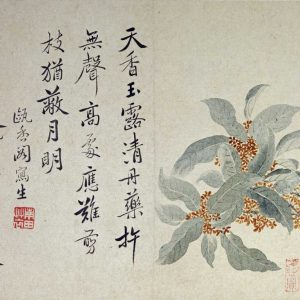 天香玉露清丹藥杵
無聲高處應難剪
枝猶蔽月明
甌香閣寫生